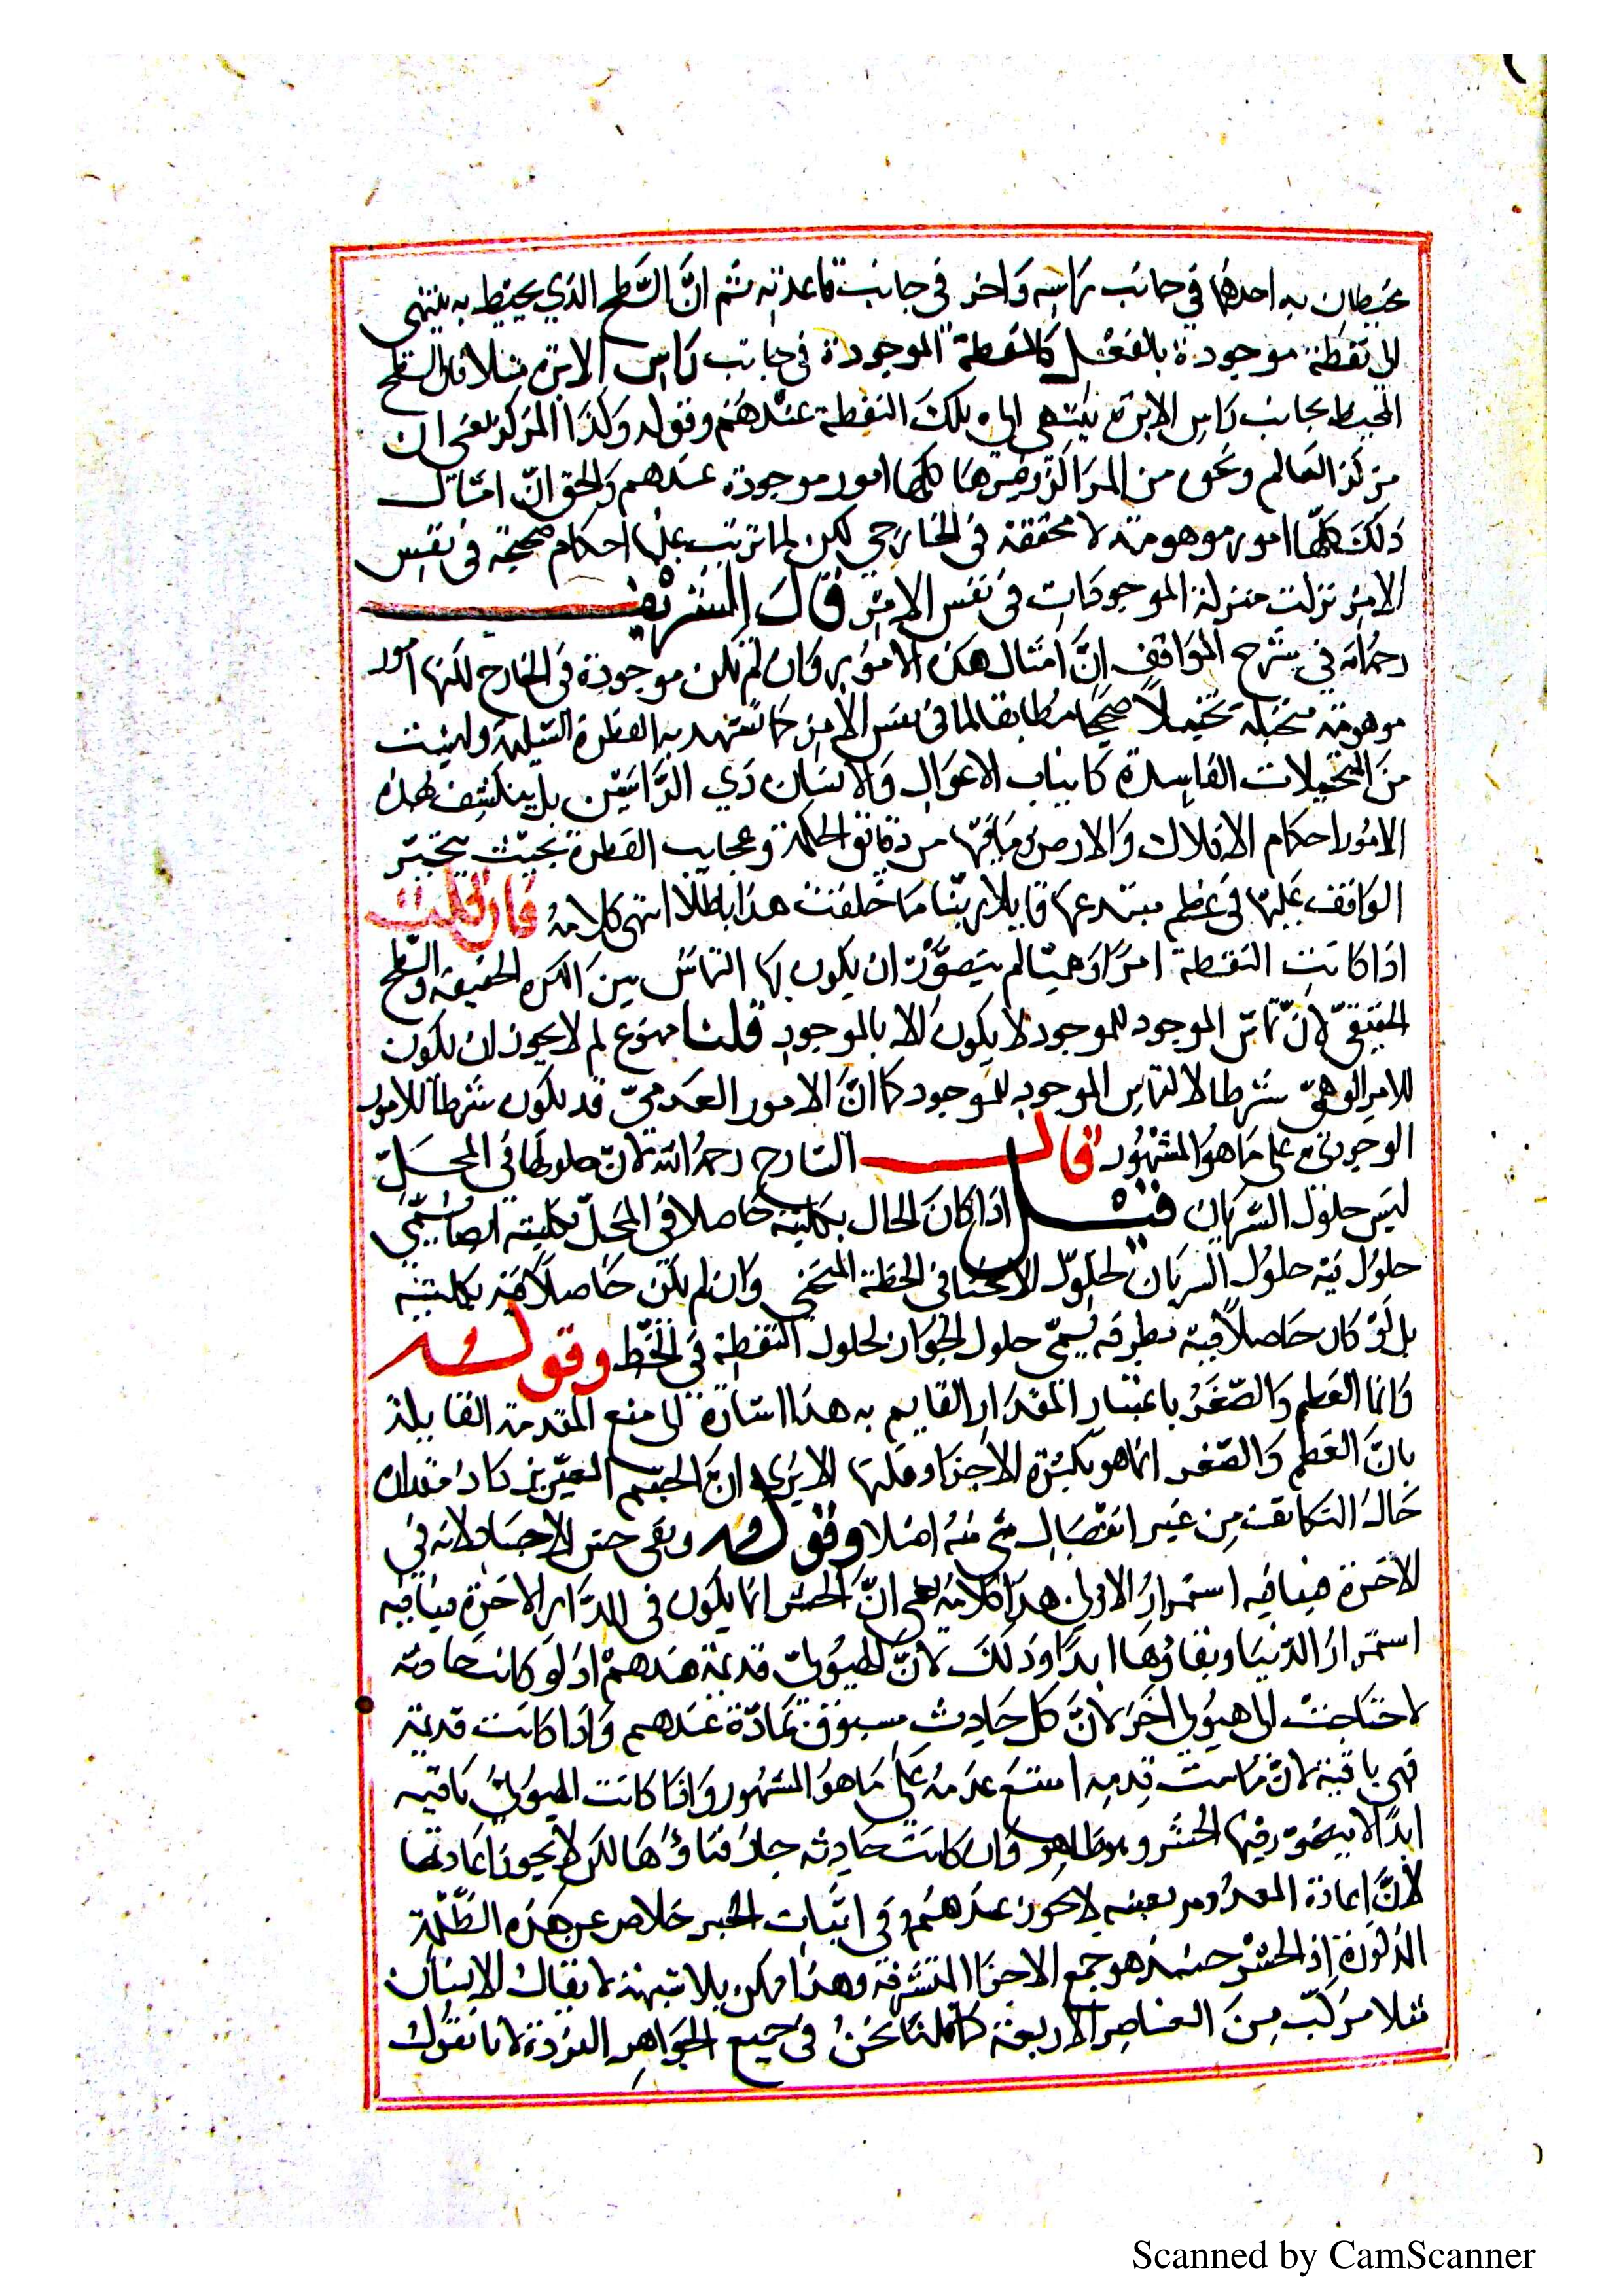 محيطان به احدهما في جانب راسه واخر في جانب قاعدته ثم انّ السّطح الذي يحيط به ينتهى
الى نقطة موجودة بالفعل كالنقطة الموجودة في جانب راس الابرة مثلا فان السطح
المحيط بجانب راس الابرة ينتهى الى تلك النقطة عندهم وقوله وكذا المركز يعنى ان
مركز العالم ونحوه من المراكز وغيرها كلها امور موجودة عندهم والحق انّ امثال
ذلك كلّها امور موهومة لا محققة في الخارجي لكن لما ترتب عليها احكام صحيحة في نفس
الامر نزلت منزلة الموجودات في نفس الامر قال الشريف
رحمه الله في شرح المواقف انّ امثال هذه الامور وان لم تكن موجودة في الخارج لكنها امور
موهومة متخيلة تخيلاً صحيحًا مطابقا لما في نفس الامر كما تشهد به الفطرة السليمة وليست
من المتخيلات الفاسدة كانياب الاغوال والانسان ذي الرّاسين بل ينكشف بهذه
الامور احكام الافلاك والارض وما فيها من دقائق الحكمة وعجايب الفطرة بحيث يتحير
الواقف عليها في عظم مبتدعها قايلا ربّنا ما خلقت هذا باطلا انتهى كلامه فان قلت
اذا كانت النقطة امرًا وهميّا لم يتصوّر ان يكون بها التماس بين الكرة الحقيقية والسّطح
الحقيقيّ لانّ تماسّ الموجود للموجود لا يكون الا بالموجود قلنا ممنوع لم لا يجوز ان يكون
للامر الوهميّ شرطا لالتماس الموجود للموجود كما انّ الامور العدميّ قد يكون شرطا للامور
الوجودي على ما هو المشهور قال الشارح رحمه الله لانّ حلولها في المحلّ
ليس حلول السريان قيل اذا كان الحال بكليته حاصلا في المحلّ بكليته ايضا يسمّى
حلول فيه حلول السريان كحلول الانحنا في الخط المنحنى وان لم يكن حاصلاً فيه بكليته
بل لو كان حاصلاً فيه بطرفه يسمّى حلول الجوار كحلول النقطة في الخط وقوله
وانما العظم والصّغر باعتبار المقدار القايم به هذا اشارة الى منع المقدمة القايلة
بانّ العظم والصّغر انما هو بكثرة الاجزا وقلتها الا يرى انّ الجسم
حالة التكاثف من غير انفصال شي منه اصلا وقوله ونفى حشر الاجساد لانه في
الاخرة فينافيه استمرار الاولى هذا كلامه يعنى انّ الحشر انما يكون في الدّار الاخرة فينافيه
استمرار الدّنيا وبقاؤها ابدًا وذلك لانّ الهيولى قديمة عندهم اذ لو كانت حادثة
لاحتاجت الى هيولى اخرى لانّ كل حادث مسبوق بمادّة عندهم واذا كانت قديمة
فهى باقية لانّ ما ثبت قدمه امتنع عدمه على ما هو المشهور واذا كانت الهيولى باقية
ابدًا لا يتصوّر فيها الحشر وهو ظاهر وان كانت حادثة جاز فناؤها لكن لا يجوز اعادتها
لانّ اعادة المعدوم بعينه لا يجوز عندهم وفي اثبات الجبر خلاص عن هذه الظّلمة
المذكورة اذ الحشر حينئذ هو جمع الاجزا المتفرقة وهذا ممكن بلا شبهة لا يقال الانسان
مثلا مركّب من العناصر الاربعة كما قلنا نحن في جميع الجواهر الفردة لانا نقول
Scanned by CamScanner